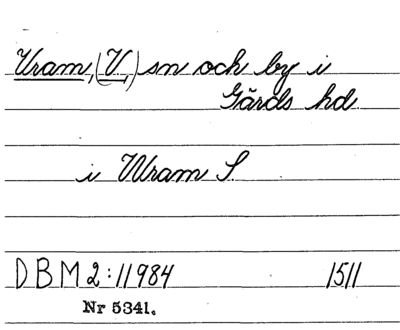 Vram, (V.,) sn och by i
Gärds hd.
i Wram S.
DBM 2:11984 1511
Nr 5341.